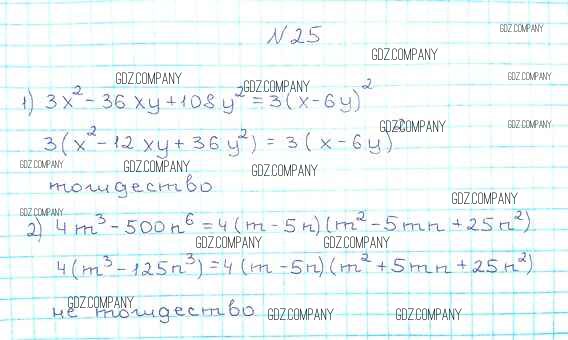 N 25
GDZ.COMPANY
GDZ.COMPANY
GDZ.COMPANY GDZ.COMPANY GDZ.COMPANY
1) 3x² - 36xy + 108y² = 3(x - 6y)²
GDZ.COMPANY GDZ.COMPANY
3(x² - 12xy + 36y²) = 3(x - 6y)²
GDZ.COMPANY GDZ.COMPANY GDZ.COMPANY
тождество
GDZ.COMPANY
GDZ.COMPANY
2) 4m³ - 500n⁶ = 4(m - 5n)(m² - 5mn + 25n²)
GDZ.COMPANY GDZ.COMPANY
4(m³ - 125n³) = 4(m - 5n)(m² + 5mn + 25n²)
GDZ.COMPANY
не тождество
GDZ.COMPANY GDZ.COMPANY